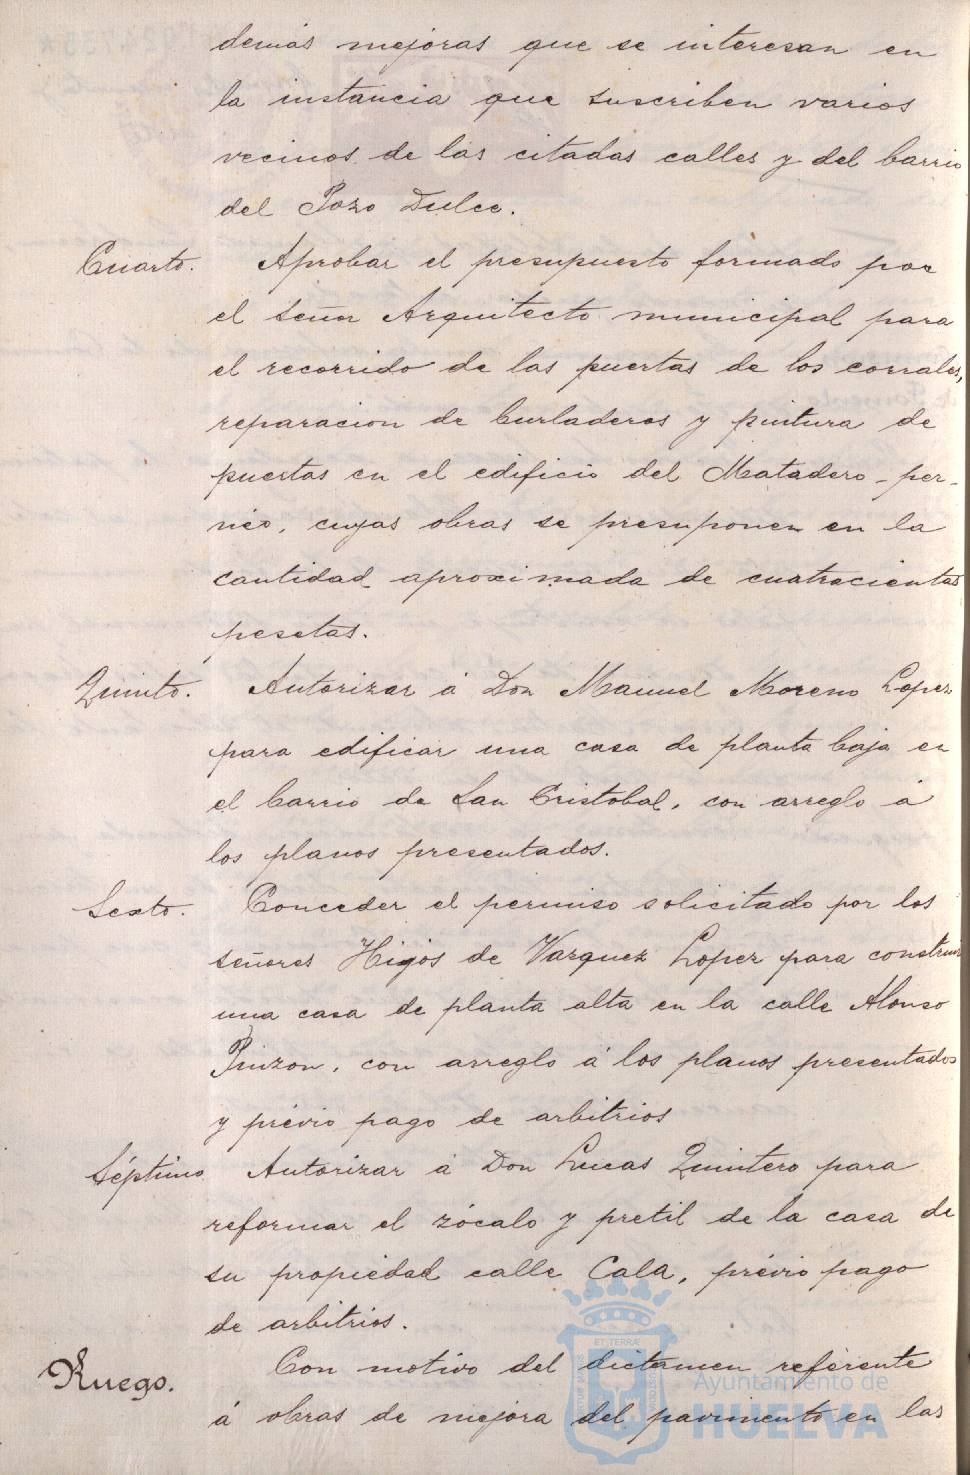 demás mejoras que se interesan en
la instancia que suscriben varios
vecinos de las citadas calles y del barrio
del Pozo Dulce.
Cuarto. Aprobar el presupuesto formado por
el Señor Arquitecto municipal para
el recorrido de las puertas de los corrales,
reparacion de burladeros y pintura de
puertas en el edificio del Matadero - per-
neo, cuyas obras se presuponen en la
cantidad aproximada de cuatrocientas
pesetas.
Quinto. Autorizar á Don Manuel Moreno Lopez
para edificar una casa de planta baja en
el barrio de San Cristobal, con arreglo á
los planos presentados.
Sexto. Conceder el permiso solicitado por los
señores Higos de Vazquez Lopez para construir
una casa de planta alta en la calle Alonso
Pinzon, con arreglo á los planos presentados
y prévio pago de arbitrios
Séptimo Autorizar á Don Lucas Quintero para
reformar el zócalo y pretil de la casa de
su propiedad calle Cala, prévio pago
de arbitrios.
Ruego. Con motivo del dictamen referente
á obras de mejora del pavimento en las
Ayuntamiento de
HUELVA